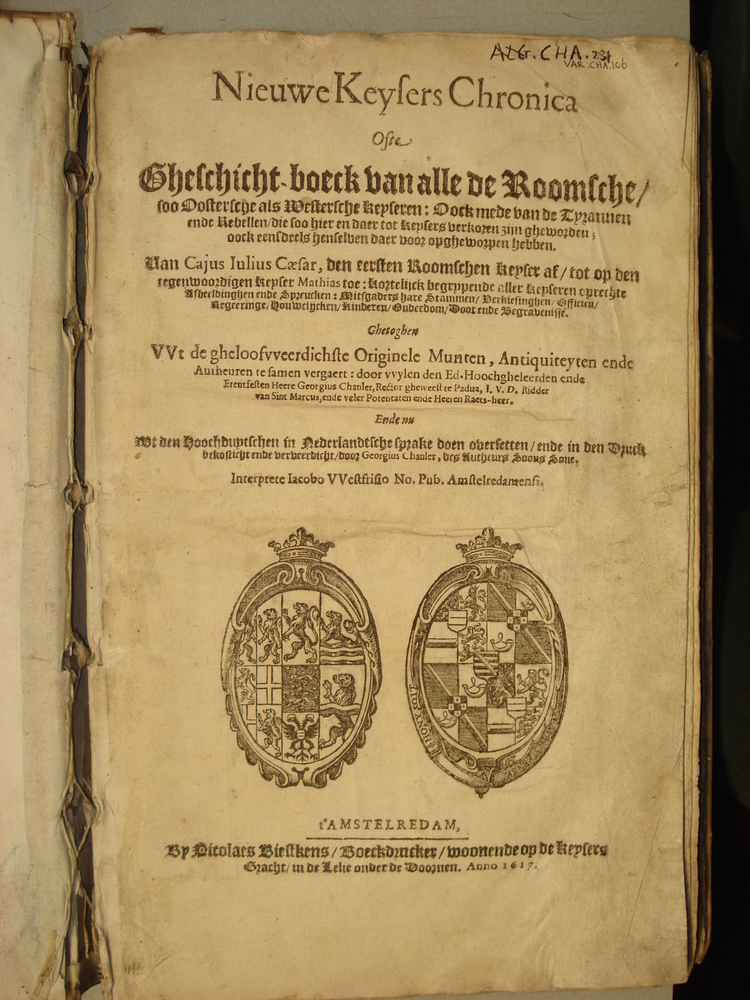 ALG. CHA. 231
VAR. CHA. 106
Nieuwe Keyſers Chronica
Ofte
Gheſchicht-boeck van alle de Roomſche/
ſoo Ooſterſche als Weſterſche Keyſeren: Oock mede van de Tyrannen
ende Rebellen/die ſoo hier en daer tot Keyſers verkoren zijn gheworden;
oock eenſdeels henſelven daer voor opgheworpen hebben.
Van Cajus Iulius Cæſar, den eerſten Roomſchen Keyſer af/ tot op den
tegenwoordigen Keyſer Mathias toe: Kortelijck begrypende aller Keyſeren oprechte
Afbeeldinghen ende Spreucken: Mitſgaders hare Stammen/ Verkieſinghen/ Officien/
Regeeringe/ Houwelijcken/ Kinderen/ Ouderdom/ Doot ende Begravenisſe.
Ghetoghen
VVt de gheloofvveerdichſte Originele Munten, Antiquiteyten ende
Autheuren te ſamen vergaert: door vvylen den Ed. Hoochgheleerden ende
Erentfeſten Heere Georgius Chanler, Rector gheweeſt te Padua, I. V. D. Ridder
van Sint Marcus, ende veler Potentaten ende Heeren Raets-heer.
Ende nu
Wt den Hoochduytſchen in Nederlandtſche ſprake doen overſetten/ ende in den Druck
bekoſticht ende verveerdicht/ door Georgius Chanler, des Autheurs Soons Sone,
Interprete Iacobo VVeſtfriſio No. Pub. Amſtelredamenſi.
HONY SOIT
t'AMSTELREDAM,
By Nicolaes Bieſtkens/ Boeckdrucker/ woonende op de Keyſers
Gracht/ in de Lelie onder de Doornen. Anno 1617.